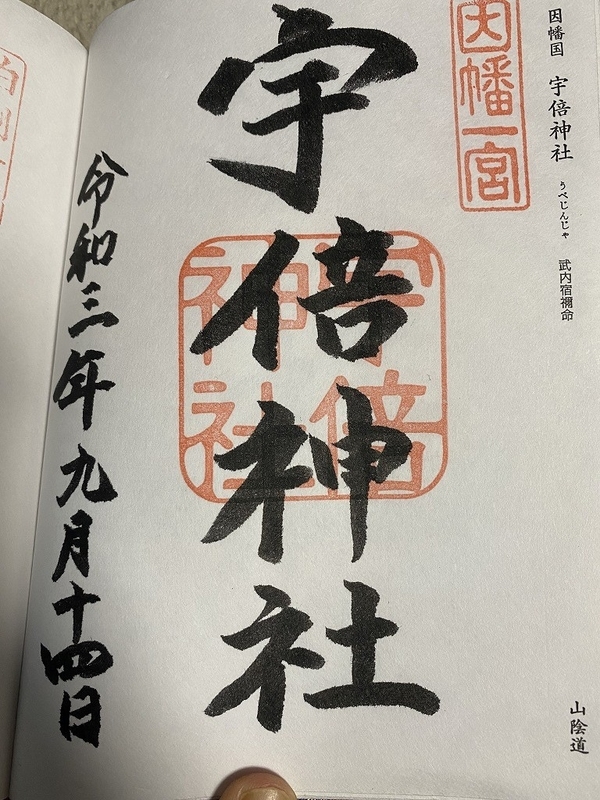 因幡国 宇倍神社 うべじんじゃ 武内宿禰命
山陰道
因幡一宮
宇倍神社
宇倍神社
令和三年九月十四日